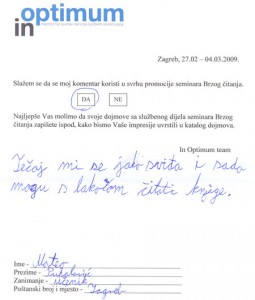 in optimum
Zagreb, 27.02 – 04.03.2009.
Slažem se da se moj komentar koristi u svrhu promocije seminara Brzog čitanja.
DA NE
Najljepše Vas molimo da svoje dojmove sa službenog dijela seminara Brzog
čitanja zapišete ispod, kako bismo Vaše impresije uvrstili u katalog dojmova.
In Optimum team
Tečaj mi se jako sviđa i sada
mogu s lakoćom čitati knjige.
Ime - Mateo
Prezime -
Zanimanje - učenik
Poštanski broj i mjesto - Zagreb